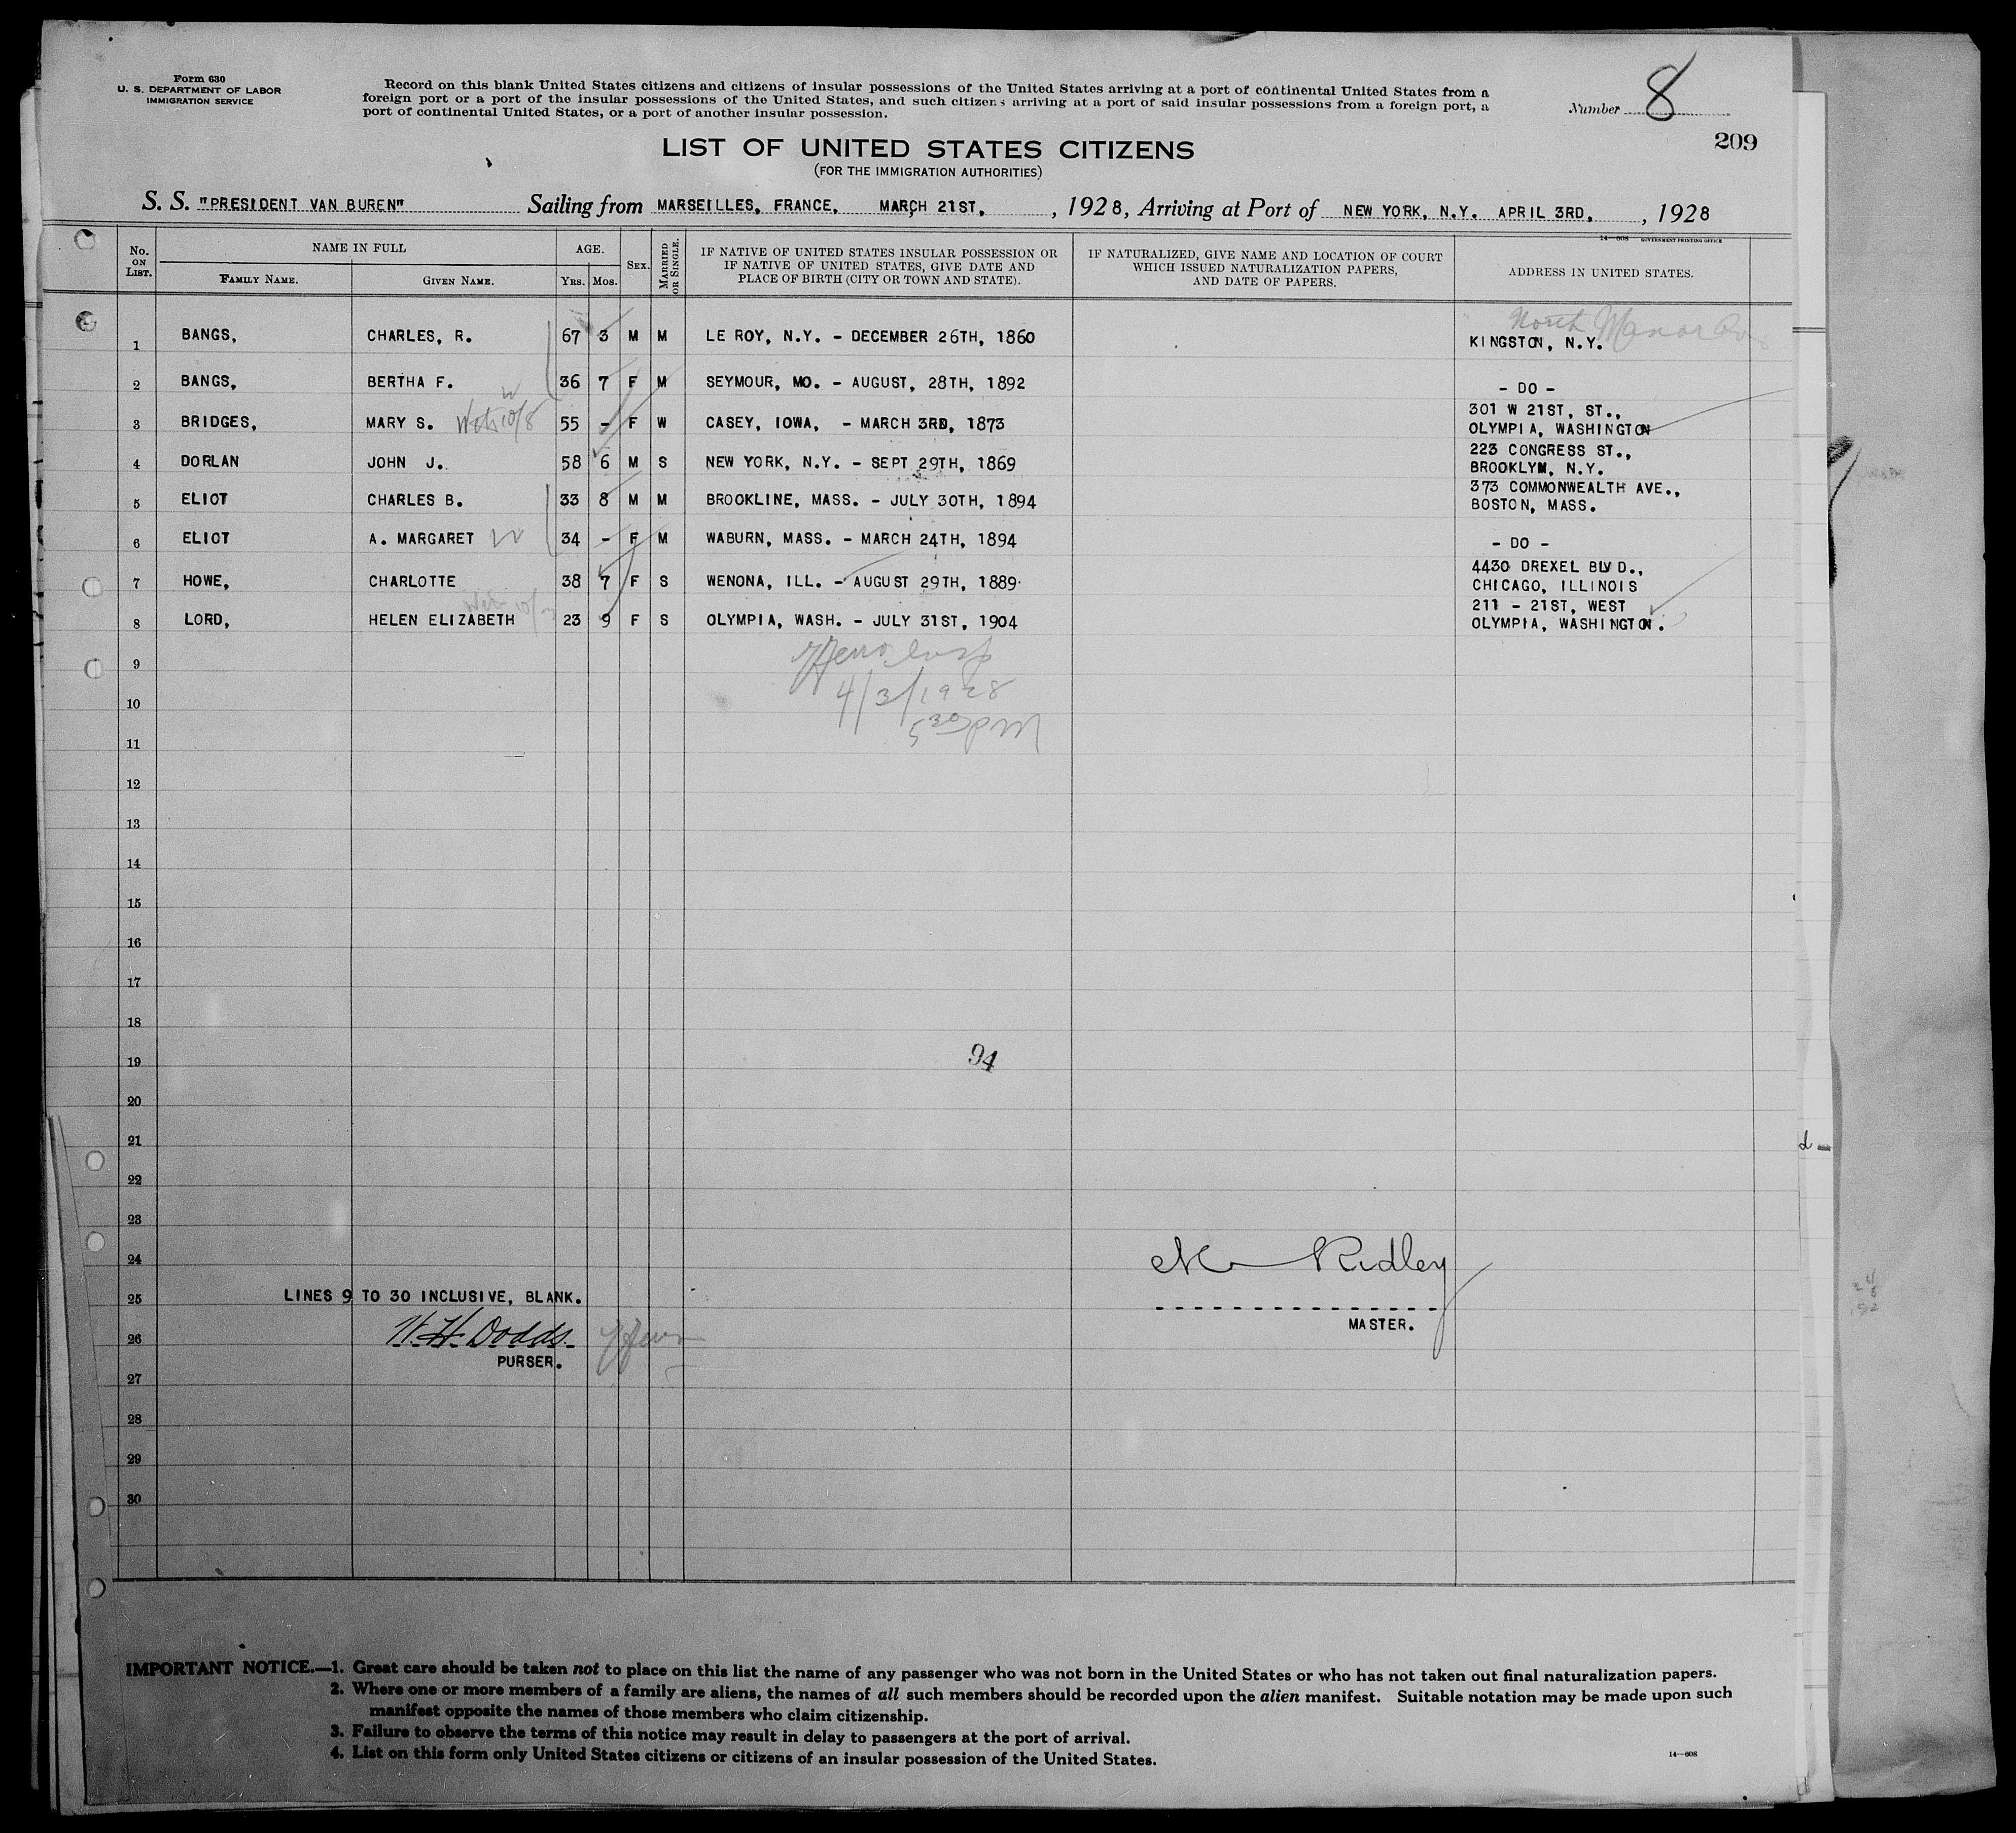 Form 630
U. S. DEPARTMENT OF LABOR
IMMIGRATION SERVICE
Record on this blank United States citizens and citizens of insular possessions of the United States arriving at a port of continental United States from a
foreign port or a port of the insular possessions of the United States, and such citizens arriving at a port of said insular possessions from a foreign port, a
port of continental United States, or a port of another insular possession.
Number 8
209
LIST OF UNITED STATES CITIZENS
(FOR THE IMMIGRATION AUTHORITIES)
S. S. "PRESIDENT VAN BUREN" Sailing from MARSEILLES, FRANCE, MARCH 21ST, , 1928, Arriving at Port of NEW YORK, N.Y. APRIL 3RD, , 1928
14—608 GOVERNMENT PRINTING OFFICE
No. ON LIST. NAME IN FULL AGE. SEX. MARRIED OR SINGLE. IF NATIVE OF UNITED STATES INSULAR POSSESSION OR IF NATIVE OF UNITED STATES, GIVE DATE AND PLACE OF BIRTH (CITY OR TOWN AND STATE). IF NATURALIZED, GIVE NAME AND LOCATION OF COURT WHICH ISSUED NATURALIZATION PAPERS, AND DATE OF PAPERS. ADDRESS IN UNITED STATES.
FAMILY NAME. GIVEN NAME. YRS. MOS.
North Manor
1 BANGS, CHARLES, R. 67 3 M M LE ROY, N.Y. - DECEMBER 26TH, 1860 KINGSTON, N.Y.
2 BANGS, BERTHA F. 36 7 F M SEYMOUR, MO. - AUGUST, 28TH, 1892 - DO -
3 BRIDGES, MARY S. 55 - F W CASEY, IOWA, - MARCH 3RD, 1873 301 W 21ST, ST., OLYMPIA, WASHINGTON
4 DORLAN JOHN J. 58 6 M S NEW YORK, N.Y. - SEPT 29TH, 1869 223 CONGRESS ST., BROOKLYN, N.Y.
5 ELIOT CHARLES B. 33 8 M M BROOKLINE, MASS. - JULY 30TH, 1894 373 COMMONWEALTH AVE., BOSTON, MASS.
6 ELIOT A. MARGARET 34 - F M WABURN, MASS. - MARCH 24TH, 1894 - DO -
7 HOWE, CHARLOTTE 38 7 F S WENONA, ILL. - AUGUST 29TH, 1889 4430 DREXEL BLVD., CHICAGO, ILLINOIS
8 LORD, HELEN ELIZABETH 23 9 F S OLYMPIA, WASH. - JULY 31ST, 1904 211 - 21ST, WEST OLYMPIA, WASHINGTON.
9
4/3/1928
10
11
12
13
14
15
16
17
18
19
94
20
21
22
23
24
M Ridley
25 LINES 9 TO 30 INCLUSIVE, BLANK.
MASTER.
26 W. H. Dodds.
PURSER.
27
28
29
30
IMPORTANT NOTICE.—1. Great care should be taken not to place on this list the name of any passenger who was not born in the United States or who has not taken out final naturalization papers.
2. Where one or more members of a family are aliens, the names of all such members should be recorded upon the alien manifest. Suitable notation may be made upon such
manifest opposite the names of those members who claim citizenship.
3. Failure to observe the terms of this notice may result in delay to passengers at the port of arrival.
4. List on this form only United States citizens or citizens of an insular possession of the United States.
14—608